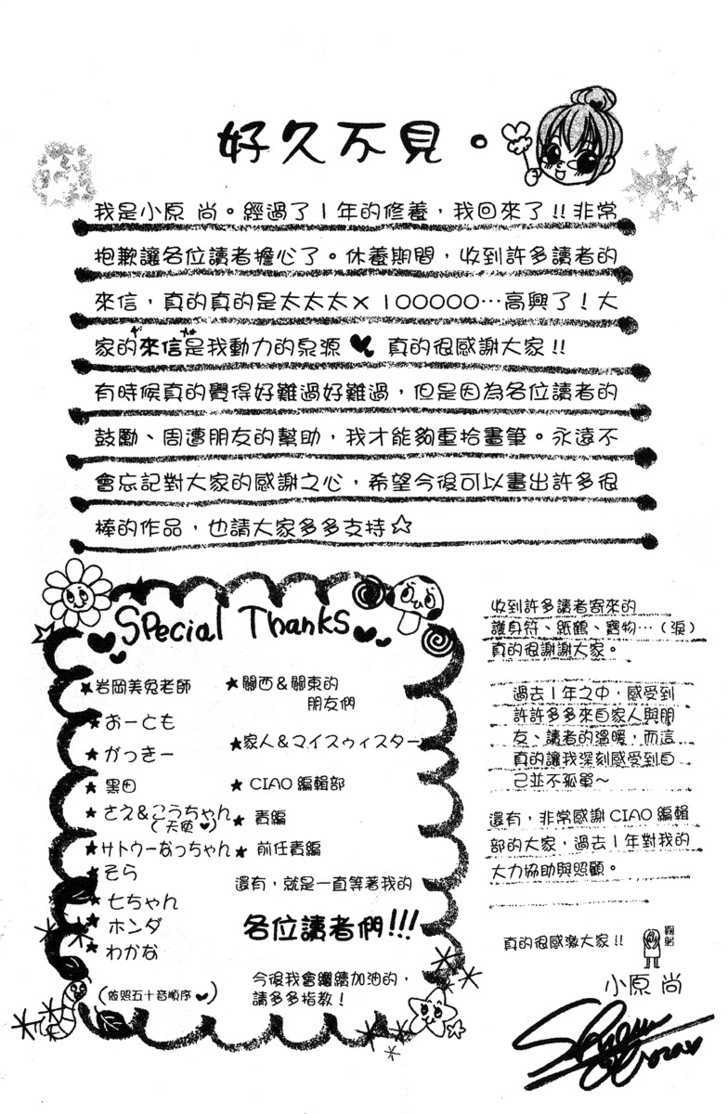 好久不見。
我是小原 尚。經過了1年的修養，我回來了!!非常
抱歉讓各位讀者擔心了。休養期間，收到許多讀者的
來信，真的真的是太太太×100000…高興了！大
家的來信是我動力的泉源♥ 真的很感謝大家!!
有時候真的覺得好難過好難過，但是因為各位讀者的
鼓勵、周遭朋友的幫助，我才能夠重拾畫筆。永遠不
會忘記對大家的感謝之心，希望今後可以畫出許多很
棒的作品，也請大家多多支持☆
Special Thanks
★岩岡美兔老師
★おーとも
★がっきー
★黒田
★さえ&こうちゃん
(天使♥)
★サトゥーなっちゃん
★そら
★七ちゃん
★ホンダ
★わかな
(依照五十音順序♥)
★關西&關東的
朋友們
★家人&マイスウィスター
★CIAO編輯部
★責編
★前任責編
還有，就是一直等著我的
各位讀者們!!!
今後我會繼續加油的，
請多多指教！
收到許多讀者寄來的
護身符、紙鶴、寶物…（淚）
真的很謝謝大家。
過去1年之中，感受到
許許多多來自家人與朋
友、讀者的溫暖，而這
真的讓我深刻感受到自
己並不孤單～
還有，非常感謝CIAO編輯
部的大家，過去1年對我的
大力協助與照顧。
真的很感激大家!!
鞠躬
小原 尚